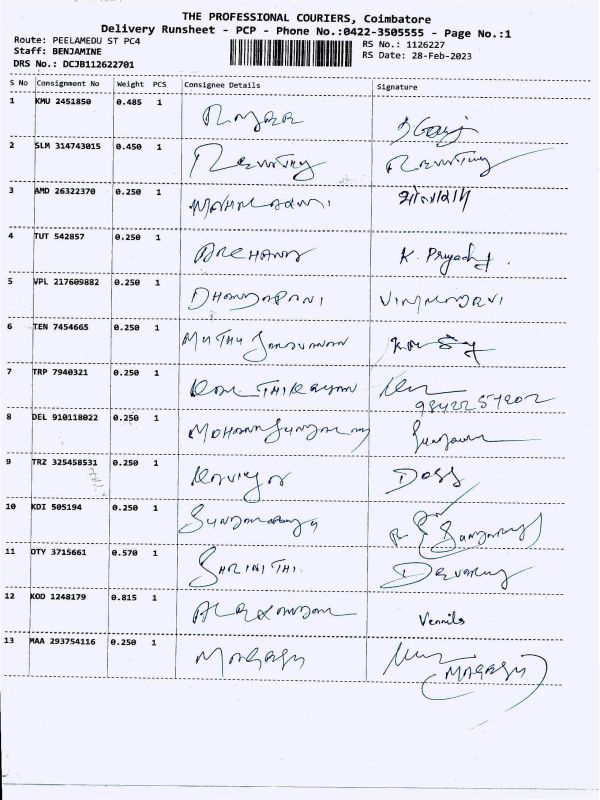 THE PROFESSIONAL COURIERS, Coimbatore
Delivery Runsheet - PCP - Phone No.:0422-3505555 - Page No.:1
Route: PEELAMEDU ST PC4
RS No.: 1126227
Staff: BENJAMINE
RS Date: 28-Feb-2023
DRS No.: DCJB112622701
S No Consignment No Weight PCS Consignee Details Signature
1 KMU 2451850 0.485 1
2 SLM 314743015 0.450 1 Revathy Revathy
3 AMD 26322370 0.250 1
4 TUT 542857 0.250 1 ARCHANA K. Priyadh
5 VPL 217609882 0.250 1 DHANDAPANI
6 TEN 7454665 0.250 1 MUTHU Saravanan
7 TRP 7940321 0.250 1
9842254802
8 DEL 910118022 0.250 1 MOHANASUNDARAM
9 TRZ 325458531 0.250 1 Doss
10 KDI 505194 0.250 1
11 OTY 3715661 0.570 1 SHRINITHI.
12 KOD 1248179 0.815 1 ALEXANDAR Vennila
13 MAA 293754116 0.250 1 MAGESH
(MAGESH)